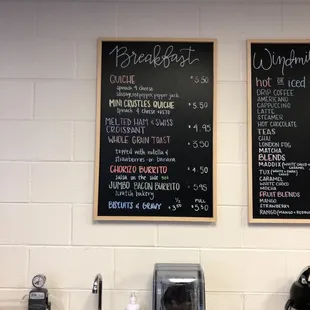 Breakfast
QUICHE $5.50
spinach 4 cheese
sausage, red pepper, pepper jack
MINI CRUSTLES QUICHE $5.50
spinach 4 cheese
MELTED HAM & SWISS
CROISSANT $4.95
WHOLE GRAIN TOAST $3.50
topped with nutella &
strawberries or banana
CHORIZO BURRITO $4.50
salsa on the side
JUMBO BACON BURRITO $5.95
scratch bakery
BISCUITS & GRAVY ½ $3.50 FULL $5.50
Windmill
hot OR iced
DRIP COFFEE
AMERICANO
CAPPUCCINO
LATTE
STEAMER
HOT CHOCOLATE
TEAS
CHAI
LONDON FOG
MATCHA
BLENDS
MADDIX
CARAMEL
TUX
CARAMEL
WHITE CHOCO
MOCHA
FRUIT BLENDS
MANGO
STRAWBERRY
RANGO